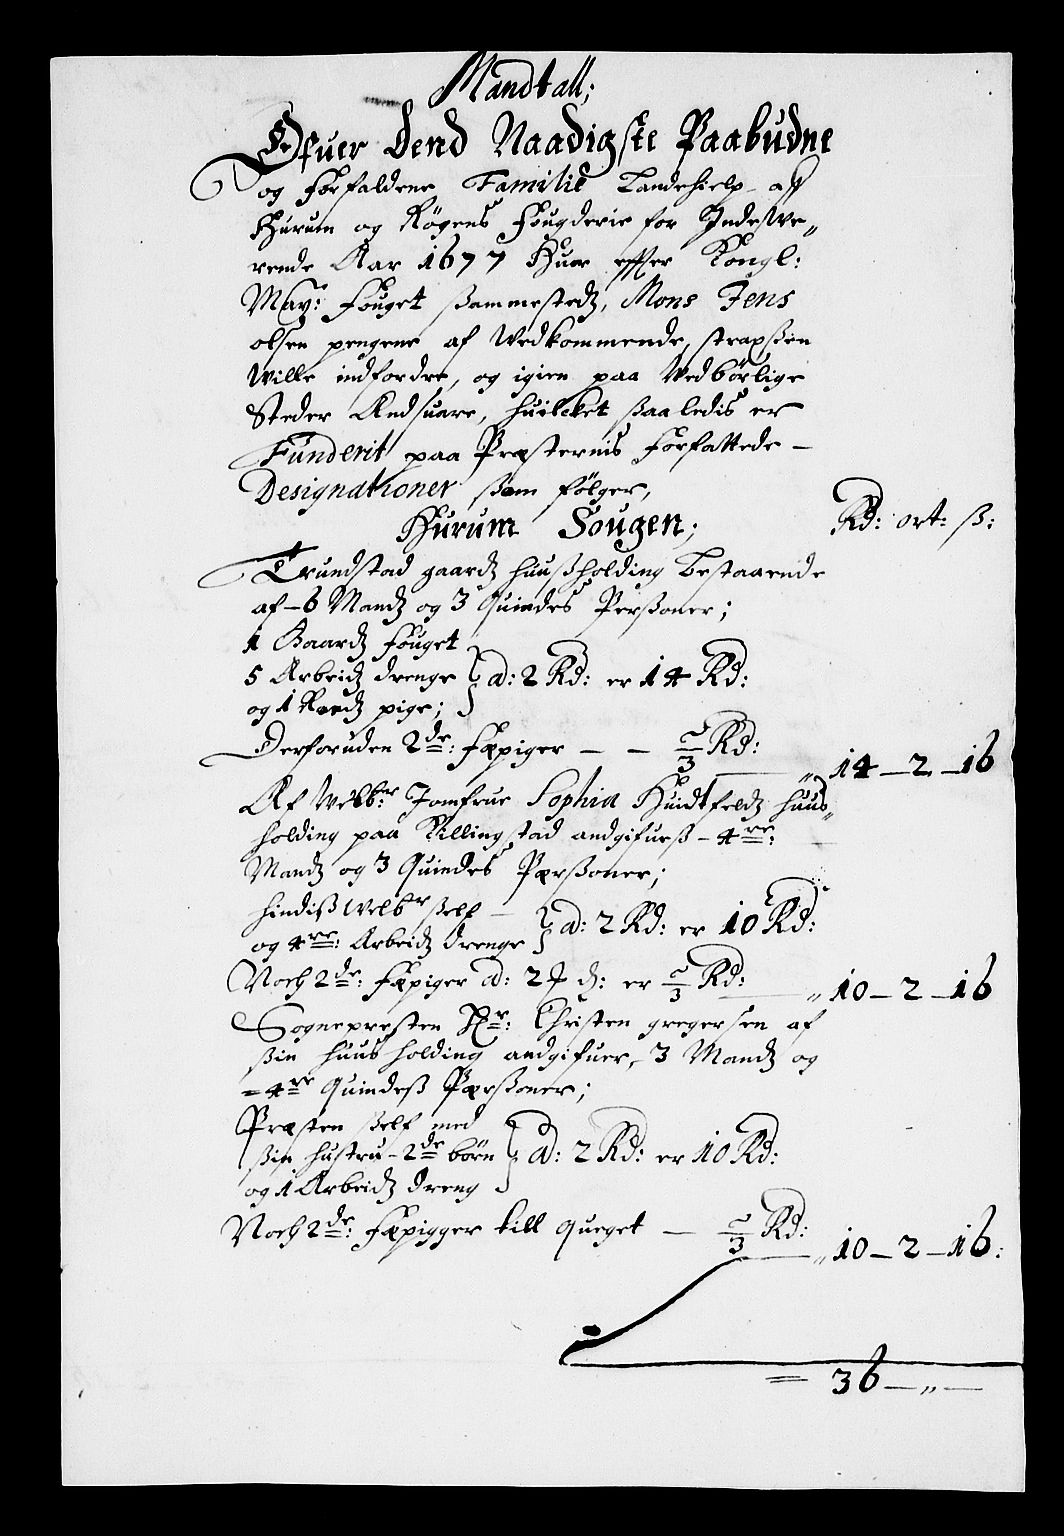 Mandtall;
Ofuer Dend Naadigste Paabudne
og Forfaldene Familie Landehielp af
Hurum og Røgens Fougderie for Indewe„
rende Aar 1677 Huor effter Kongl:
May: Fouget sammestedz, Mons Jens
olsen pengene af Wedkommende, strax ßin
Wille indfordre, og igien paa Wedbørlige
Steder Andsuare, huilcket ßaaledis er
Funderit paa Præsternis Forfattede –
Designationer ßom følger,
Hurum Sougen; Rd: ort: ß:
Trundstad gaardz huußholding Bestaaende
af – 6 Mandz og 3 Quindes Perßoner;
1 Gaardz Fouget
5 Arbeidz drenge } a: 2 Rd: er 14 Rd:
og 1 pige;
Derforuden 2de: Fæpiger – – 2/3 Rd: „ 14 – 2 – 16
Af Welb:r Jomfrue Sophia Huidtfeldz huus„
holding paa Killingstad andgifuerß – 4re:
Mandz og 3 Quindes Pærßoner;
hindiß Welbr ßelf –
og 4re: Arbeidz drenge } a: 2 Rd: er 10 Rd:
Noch 2de: Fæpiger a: 2 d: er 2/3 Rd: „ 10 – 2 – 16
Sognepresten Hr: Christen gregersen af
ßin huusholding andgifuer, 3 Mandz og
= 4re Quindeß Pærßoner;
Præsten ßelf med
ßin hustru – 2de børn } a: 2 Rd: er 10 Rd:
og 1 Arbeidz dreng
Noch 2de: Fæpigger till queget – 2/3 Rd: „ 10 – 2 – 16:
= 36 – „ –